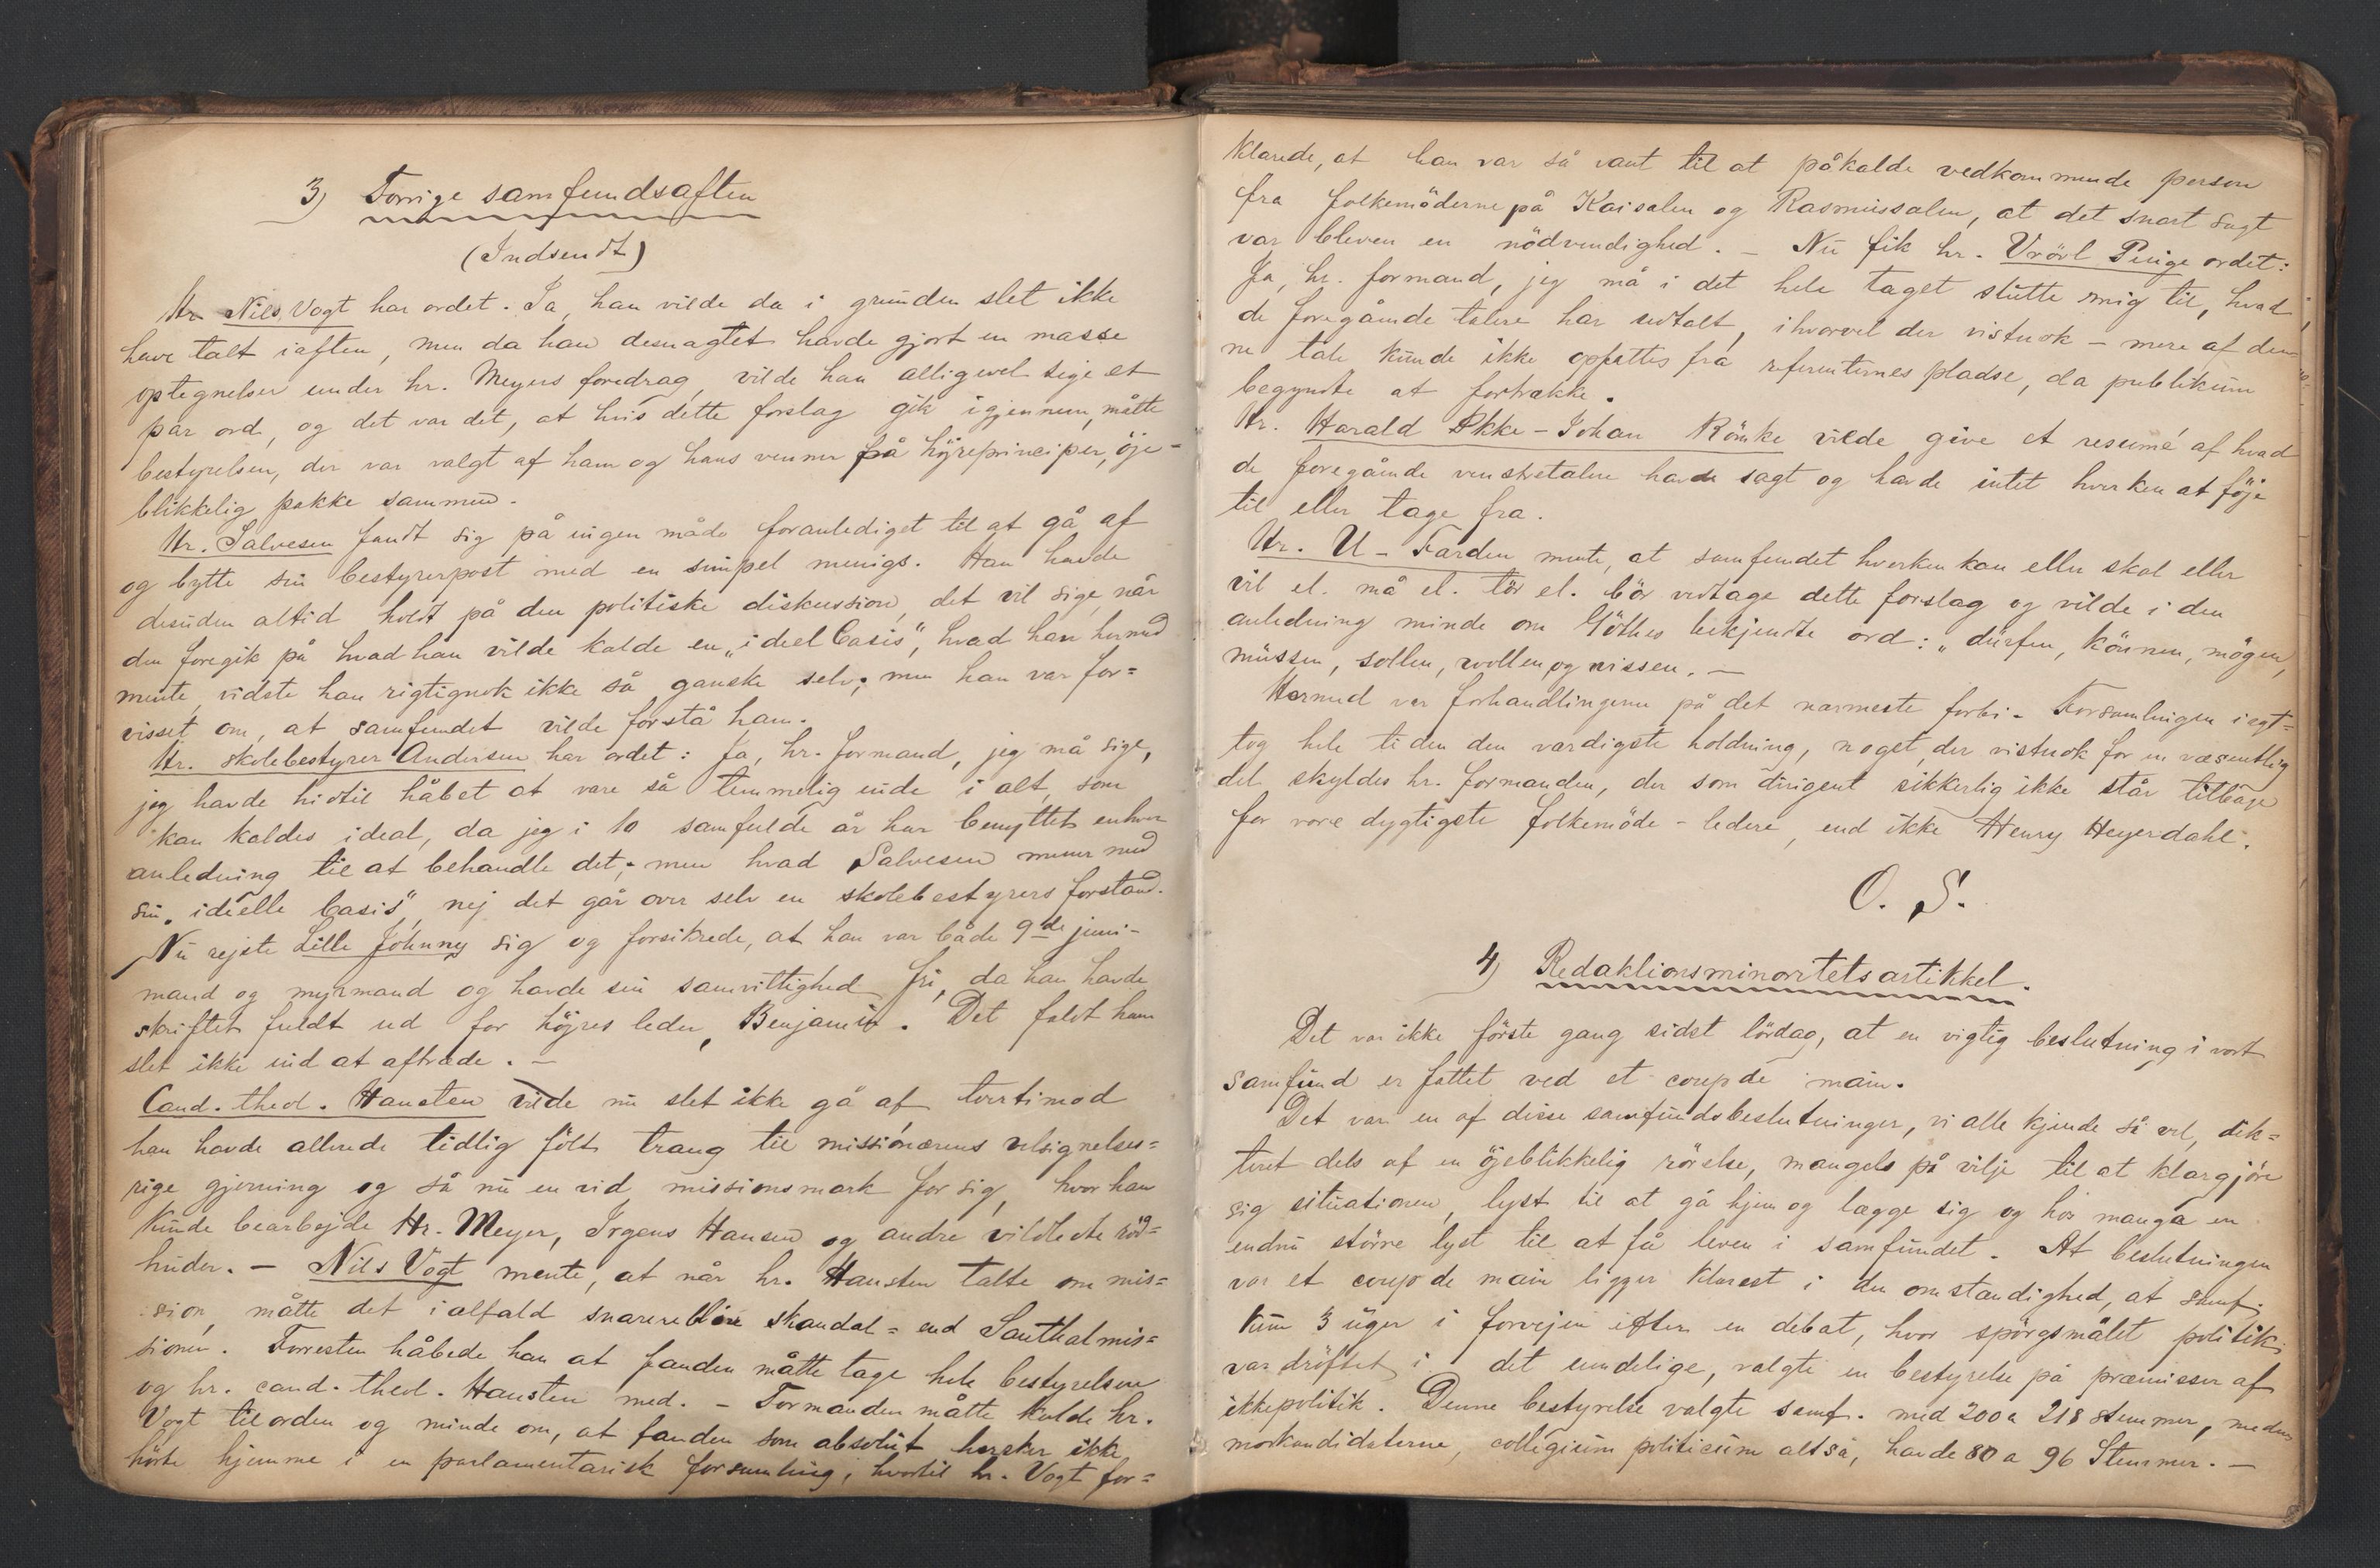 3) Forrige samfundsaften
(Indsendt)
Hr. Nils Vogt har ordet. Ja, han vilde da i grunden slet ikke
have talt iaften, men da han desuagtet havde gjort en masse
optegnelser under hr. Meyers foredrag, vilde han alligevel sige et
par ord, og det var det, at hvis dette forslag gik igjennem, måtte
bestyrelsen, der var valgt af ham og hans venner på höjreprinciper, öje-
blikkelig pakke sammen.
Hr. Salvesen fandt sig på ingen måde foranlediget til at gå af
og bytte sin bestyrerpost med en simpel menigs. Han havde
desuden altid holdt på den politiske diskussion, det vil sige, når
den foregik på hvad han vilde kalde en „ideel basis", hvad han hermed
mente, vidste han rigtignok ikke så ganske selv; men han var for=
visset om, at samfundet vilde forstå ham.
Hr. skolebestyrer Andersen har ordet: Ja, hr. formand, jeg må sige,
jeg havde hidtil håbet at være så temmelig inde i alt, som
kan kaldes ideal, da jeg i 10 samfulde år har benyttet enhver
anledning til at behandle det; men hvad Salvesen mener med
sin „idéelle basis", nej det går over selv en skolebestyrers forstand.
Nu rejste Lille Johnny sig og forsikrede, at han var både 9de juni-
mand og myrmand og havde sin samvittighed fri, da han havde
skriftet fuldt ud for höjres leder, Benjamin. Det faldt ham
slet ikke ind at aftræde. —
Cand. theol. Hansten vilde nu slet ikke gå af, tvertimod
han havde allerede tidlig fölt trang til missionærens velsignelses=
rige gjerning og så nu en vid missionsmark for sig, hvor han
kunde bearbejde Hr. Meyer, Irgens Hansen og andre vildledte röd=
huder. — Nils Vogt mente, at når hr. Hansten talte om mis=
sion, måtte det ialfald snarere blive skandal= end Santhalmis=
sionen. Forresten håbede han at fanden måtte tage hele bestyrelsen
og hr. cand. theol. Hansten med. — Formanden måtte kalde hr.
Vogt til orden og minde om, at fanden som absolut hersker ikke
hörte hjemme i en parlamentarisk forsamling, hvortil hr. Vogt for=
klarede, at han var så vant til at påkalde vedkommende person
fra folkemöderne på Kaisalen og Rasmussalen, at det snart sagt
var bleven en nödvendighed. — Nu fik hr. Vrövl Pinge ordet:
Ja, hr. formand, jeg må i det hele taget slutte mig til, hvad
de foregående talere har udtalt, ihvorvel der vistnok — mere af den-
ne tale kunde ikke opfattes fra referenternes pladse, da publikum
begyndte at fortrække.
Hr. Harald Ikke-Johan Römke vilde give et resumé af hvad
de foregående venstretalere havde sagt og havde intet hverken at föje
til eller tage fra.
Hr. U-Farden mente, at samfundet hverken kan eller skal eller
vil el. må el. tör el. bör vedtage dette forslag og vilde i den
anledning minde om Göthes bekjendte ord: „dürfen, können, mögen,
müssen, sollen, wollen og wissen. —
Hermed var forhandlingerne på det nærmeste forbi. Forsamlingen iagt=
tog hele tiden den værdigste holdning, noget, der vistnok for en væsentlig
del skyldes hr. formanden, der som dirigent sikkerlig ikke står tilbage
for vore dygtigste folkemöde-ledere, end ikke Henry Heyerdahl.
O. S.
4) Redaktionsminoritetsartikkel.
Det var ikke förste gang sidst lördag, at en vigtig beslutning i vort
samfund er fattet ved et coup de main.
Det var en af disse samfundsbeslutninger, vi alle kjende så vel, dik=
teret dels af en öjeblikkelig rörelse, mangels på vilje til at klargjöre
sig situationen, lyst til at gå hjem og lægge sig og hos mange en
endnu större lyst til at få leven i samfundet. At beslutningen
var et coup de main ligger klarest i den omstændighed, at samf.
kun 3 uger i forvejen efter en debat, hvor spörgsmålet politik
var dröftet i det uendelige, valgte en bestyrelse på præmisser af
ikkepolitik. Denne bestyrelse valgte samf. med 200 a 218 stemmer, medens
morkandidaterne, collegium politicum altså, havde 80 a 96 Stemmer. —